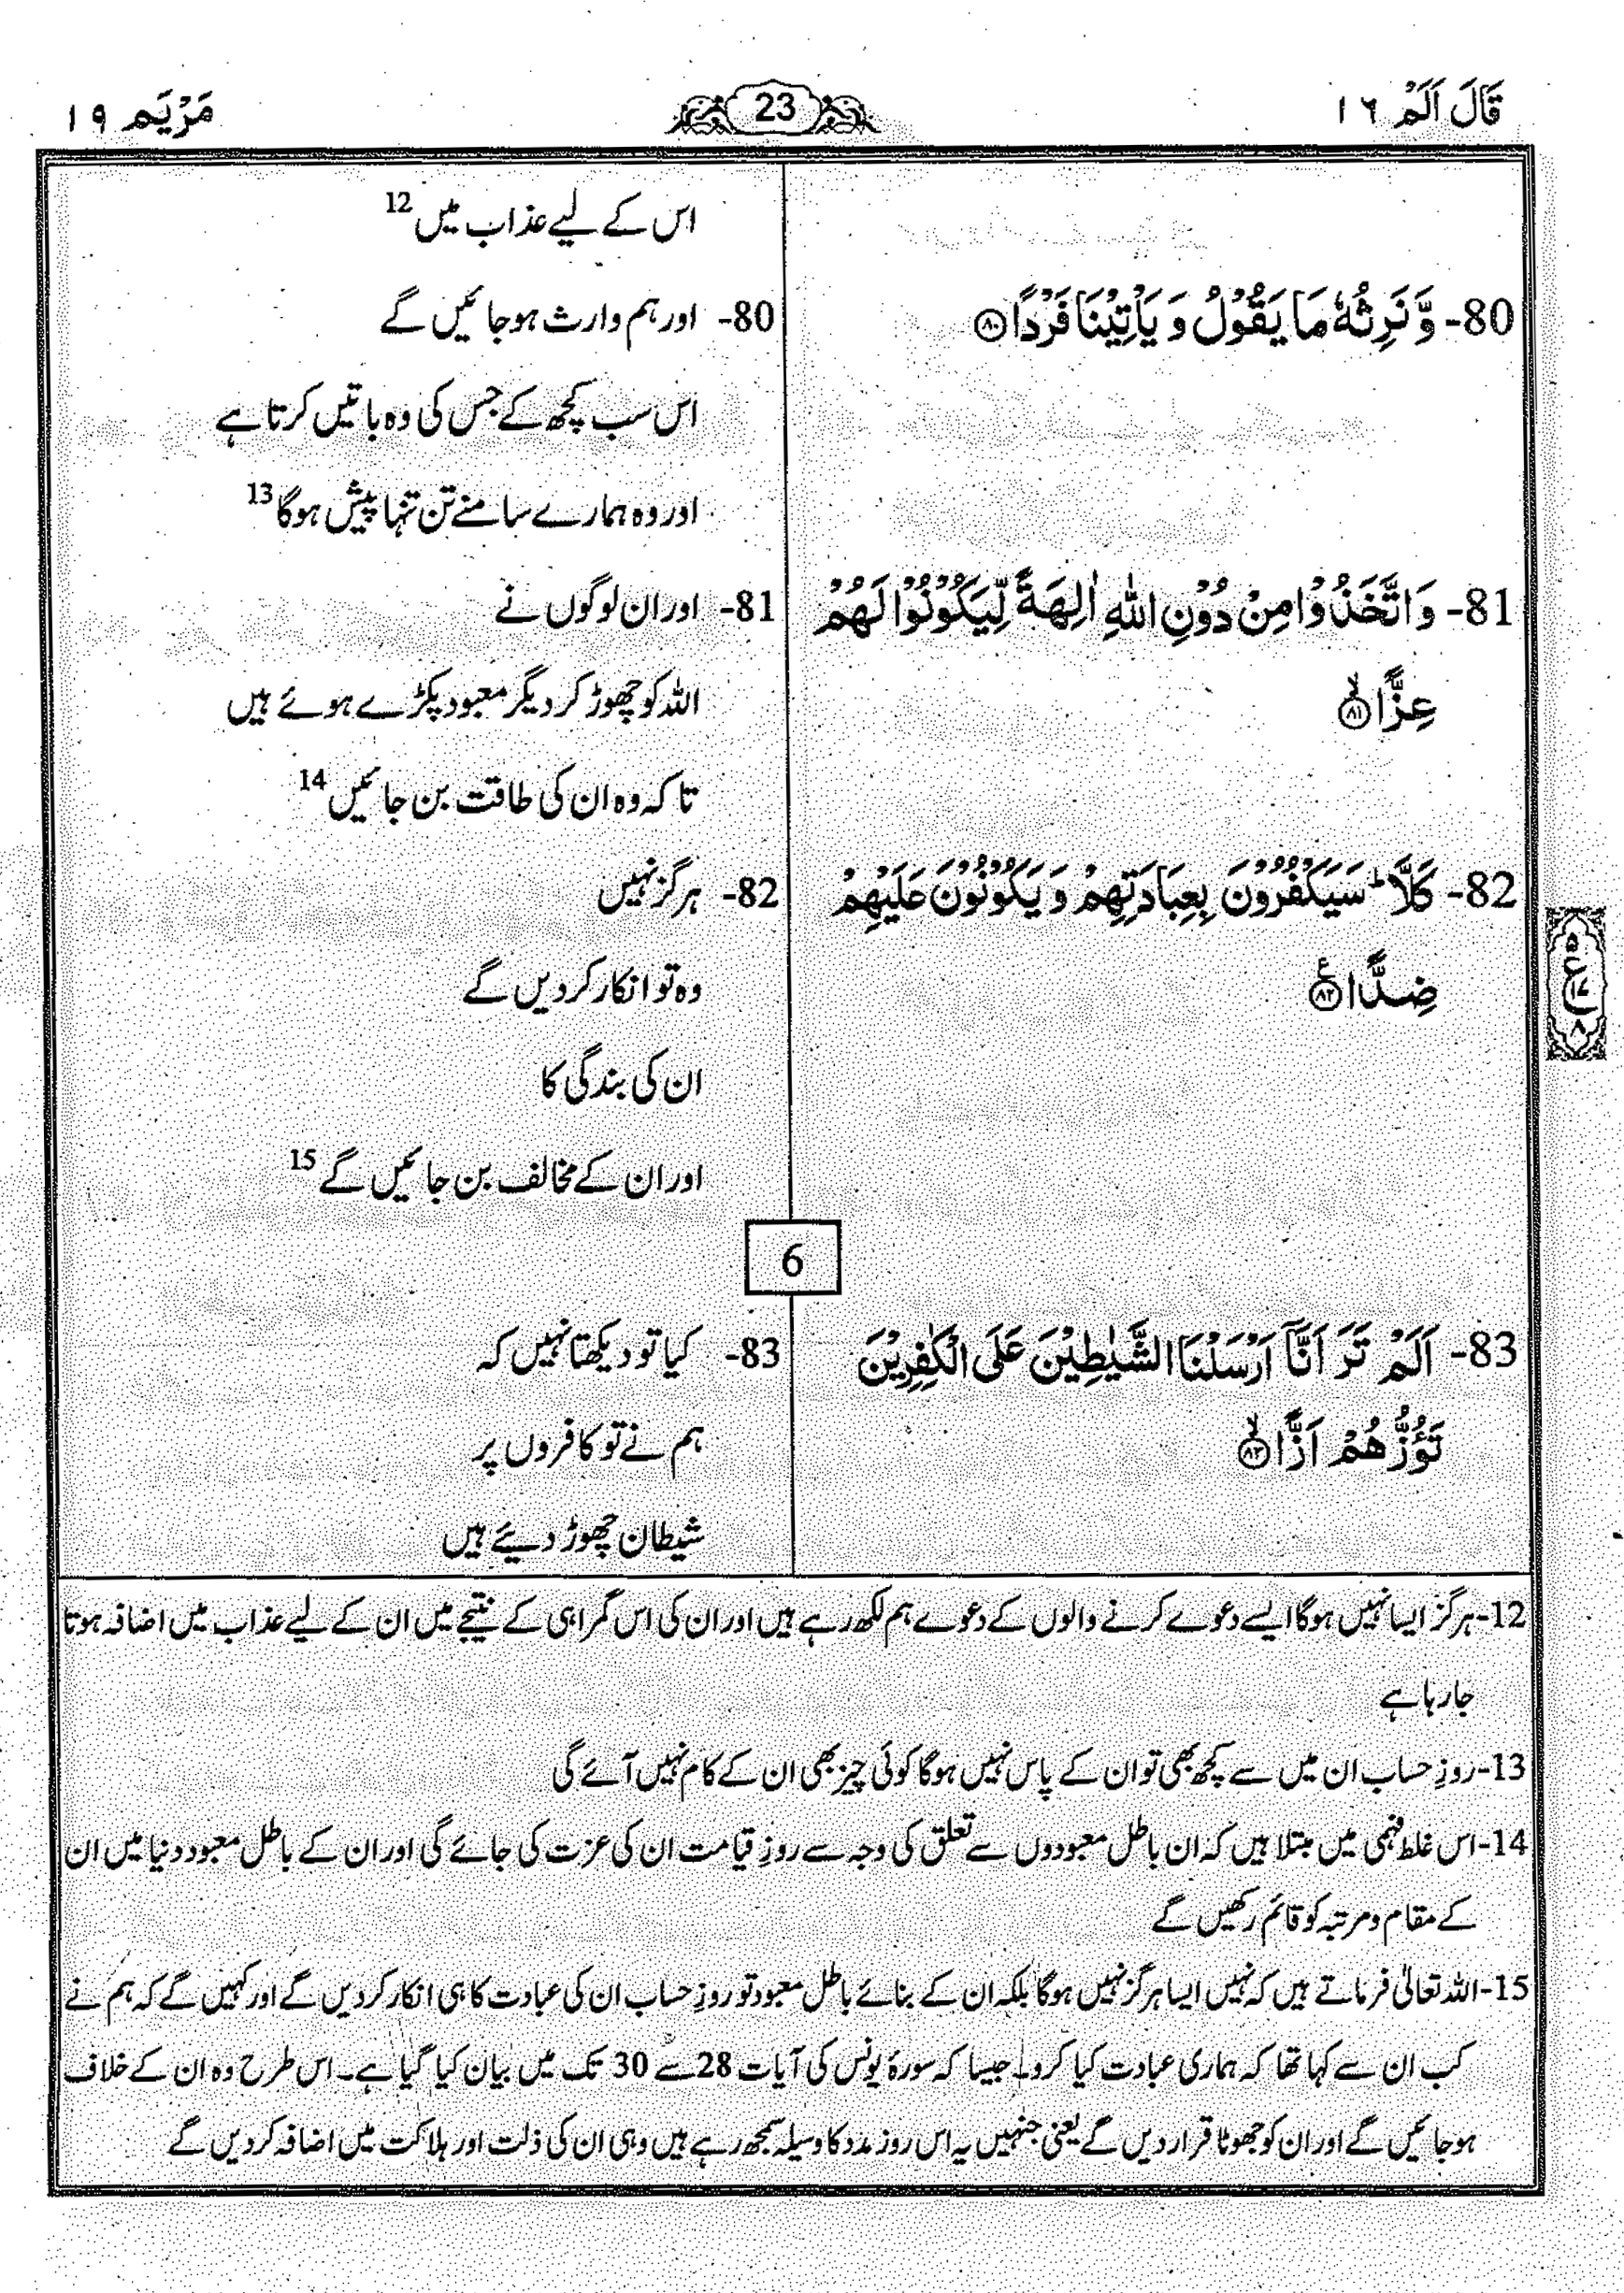 قَالَ اَلَمْ ١٦
23
مَرْيَم ١٩
اس کے لیے عذاب میں 12
80- وَّ نَرِثُهٗ مَا يَقُوْلُ وَ يَاْتِيْنَا فَرْدًا ۝٨٠
80- اور ہم وارث ہوجائیں گے
اس سب کچھ کے جس کی وہ باتیں کرتا ہے
اور وہ ہمارے سامنے تن تنہا پیش ہوگا 13
81- وَ اتَّخَذُوْا مِنْ دُوْنِ اللّٰهِ اٰلِهَةً لِّيَكُوْنُوْا لَهُمْ
عِزًّا ۝٨١ۙ
81- اور ان لوگوں نے
اللہ کو چھوڑ کر دیگر معبود پکڑے ہوئے ہیں
تاکہ وہ ان کی طاقت بن جائیں 14
82- كَلَّا ؕ سَيَكْفُرُوْنَ بِعِبَادَتِهِمْ وَ يَكُوْنُوْنَ عَلَيْهِمْ
ضِدًّا ۝٨٢ۧ
82- ہرگز نہیں
وہ تو انکار کردیں گے
ان کی بندگی کا
اور ان کے مخالف بن جائیں گے 15
٥
ع
١٧
٨
6
83- اَلَمْ تَرَ اَنَّاۤ اَرْسَلْنَا الشَّيٰطِيْنَ عَلَى الْكٰفِرِيْنَ
تَؤُزُّهُمْ اَزًّا ۝٨٣ۙ
83- کیا تو دیکھتا نہیں کہ
ہم نے تو کافروں پر
شیطان چھوڑ دیئے ہیں
12- ہرگز ایسا نہیں ہوگا ایسے دعوے کرنے والوں کے دعوے ہم لکھ رہے ہیں اور ان کی اس گمراہی کے نتیجے میں ان کے لیے عذاب میں اضافہ ہوتا
جا رہا ہے
13- روزِ حساب ان میں سے کچھ بھی تو ان کے پاس نہیں ہوگا کوئی چیز بھی ان کے کام نہیں آئے گی
14- اس غلط فہمی میں مبتلا ہیں کہ ان باطل معبودوں سے تعلق کی وجہ سے روزِ قیامت ان کی عزت کی جائے گی اور ان کے باطل معبود دنیا میں ان
کے مقام و مرتبہ کو قائم رکھیں گے
15- اللہ تعالیٰ فرماتے ہیں کہ نہیں ایسا ہرگز نہیں ہوگا بلکہ ان کے بنائے باطل معبود تو روزِ حساب ان کی عبادت کا ہی انکار کردیں گے اور کہیں گے کہ ہم نے
کب ان سے کہا تھا کہ ہماری عبادت کیا کرو۔ جیسا کہ سورۂ یونس کی آیات 28 سے 30 تک میں بیان کیا گیا ہے۔ اس طرح وہ ان کے خلاف
ہوجائیں گے اور ان کو جھوٹا قرار دیں گے یعنی جنہیں یہ اس روز مدد کا وسیلہ سمجھ رہے ہیں وہی ان کی ذلت اور ہلاکت میں اضافہ کردیں گے